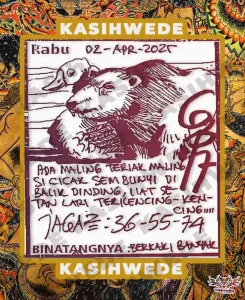 KASIHWEDE
Rabu 02-APR-2025
ADA MALING TERIAK MALING
SI CICAK SEMBUNYI DI
BALIK DINDING, LIAT SE
TAN LARI TERKENCING-KEN-
CING....
JAGA2=-36-55-74
BINATANGNYA BERKAKI BANYAK
KASIHWEDE